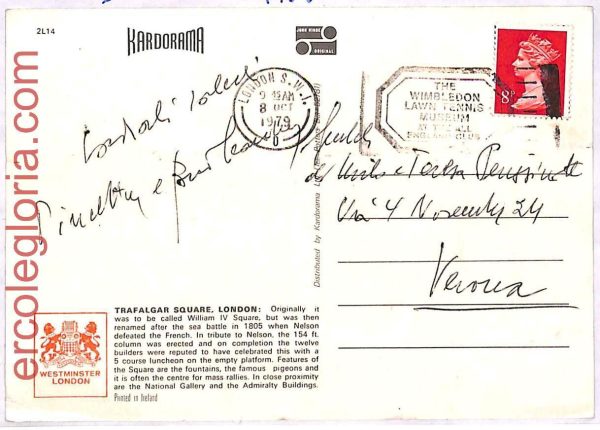 2L14
KARDORAMA
JOHN HINDE
ORIGINAL
LONDON S.W.1
9 45AM
8 OCT
1979
THE
WIMBLEDON
LAWN TENNIS
MUSEUM
AT THE ALL
ENGLAND CLUB
8P
Cordiali saluti
e
Via 4 Novembre 24
Verona
Distributed by Kardorama Ltd., Potters Bar
TRAFALGAR SQUARE, LONDON: Originally it
was to be called William IV Square, but was then
renamed after the sea battle in 1805 when Nelson
defeated the French. In tribute to Nelson, the 154 ft.
column was erected and on completion the twelve
builders were reputed to have celebrated this with a
5 course luncheon on the empty platform. Features of
the Square are the fountains, the famous pigeons and
it is often the centre for mass rallies. In close proximity
are the National Gallery and the Admiralty Buildings.
Printed in Ireland
WESTMINSTER
LONDON
ercolegloria.com